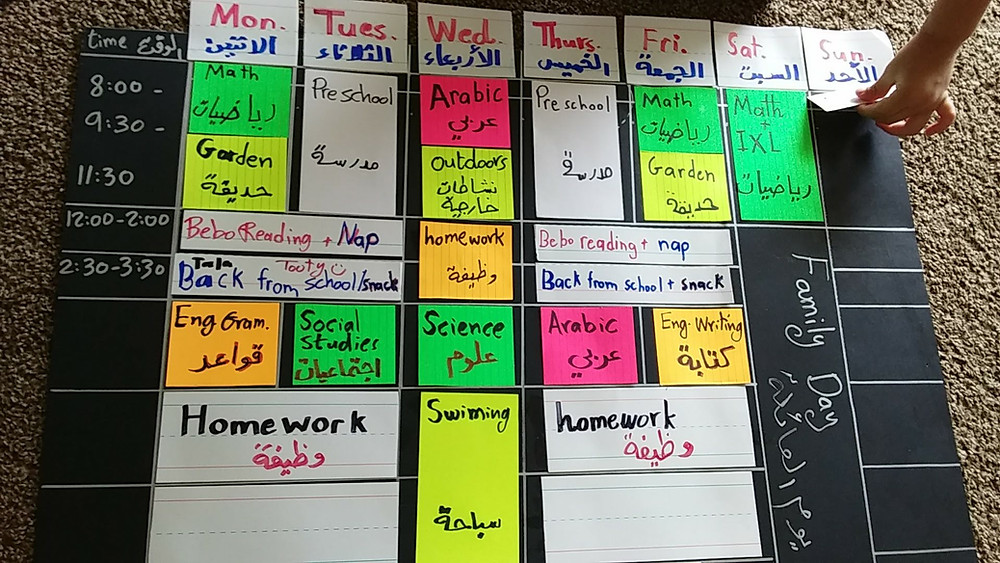 time الوقت
Mon.
الاثنين
Tues.
الثلاثاء
Wed.
الأربعاء
Thurs.
الخميس
Fri.
الجمعة
Sat.
السبت
Sun.
الأحد
8:00 -
9:30 -
11:30
Math
رياضيات
Garden
حديقة
Preschool
مدرسة
Arabic
عربي
outdoors
نشاطات
خارجية
Preschool
مدرسة
Math
رياضيات
Garden
حديقة
Math
+
IXL
رياضيات
12:00-2:00
Bebo Reading + Nap
homework
وظيفة
Bebo reading + nap
2:30-3:30
Tala Tooty
Back from school/snack
Back from school + snack
Eng Gram.
قواعد
Social
Studies
اجتماعيات
Science
علوم
Arabic
عربي
Eng. Writing
كتابة
Family Day
يوم العائلة
Homework
وظيفة
Swiming
سباحة
homework
وظيفة